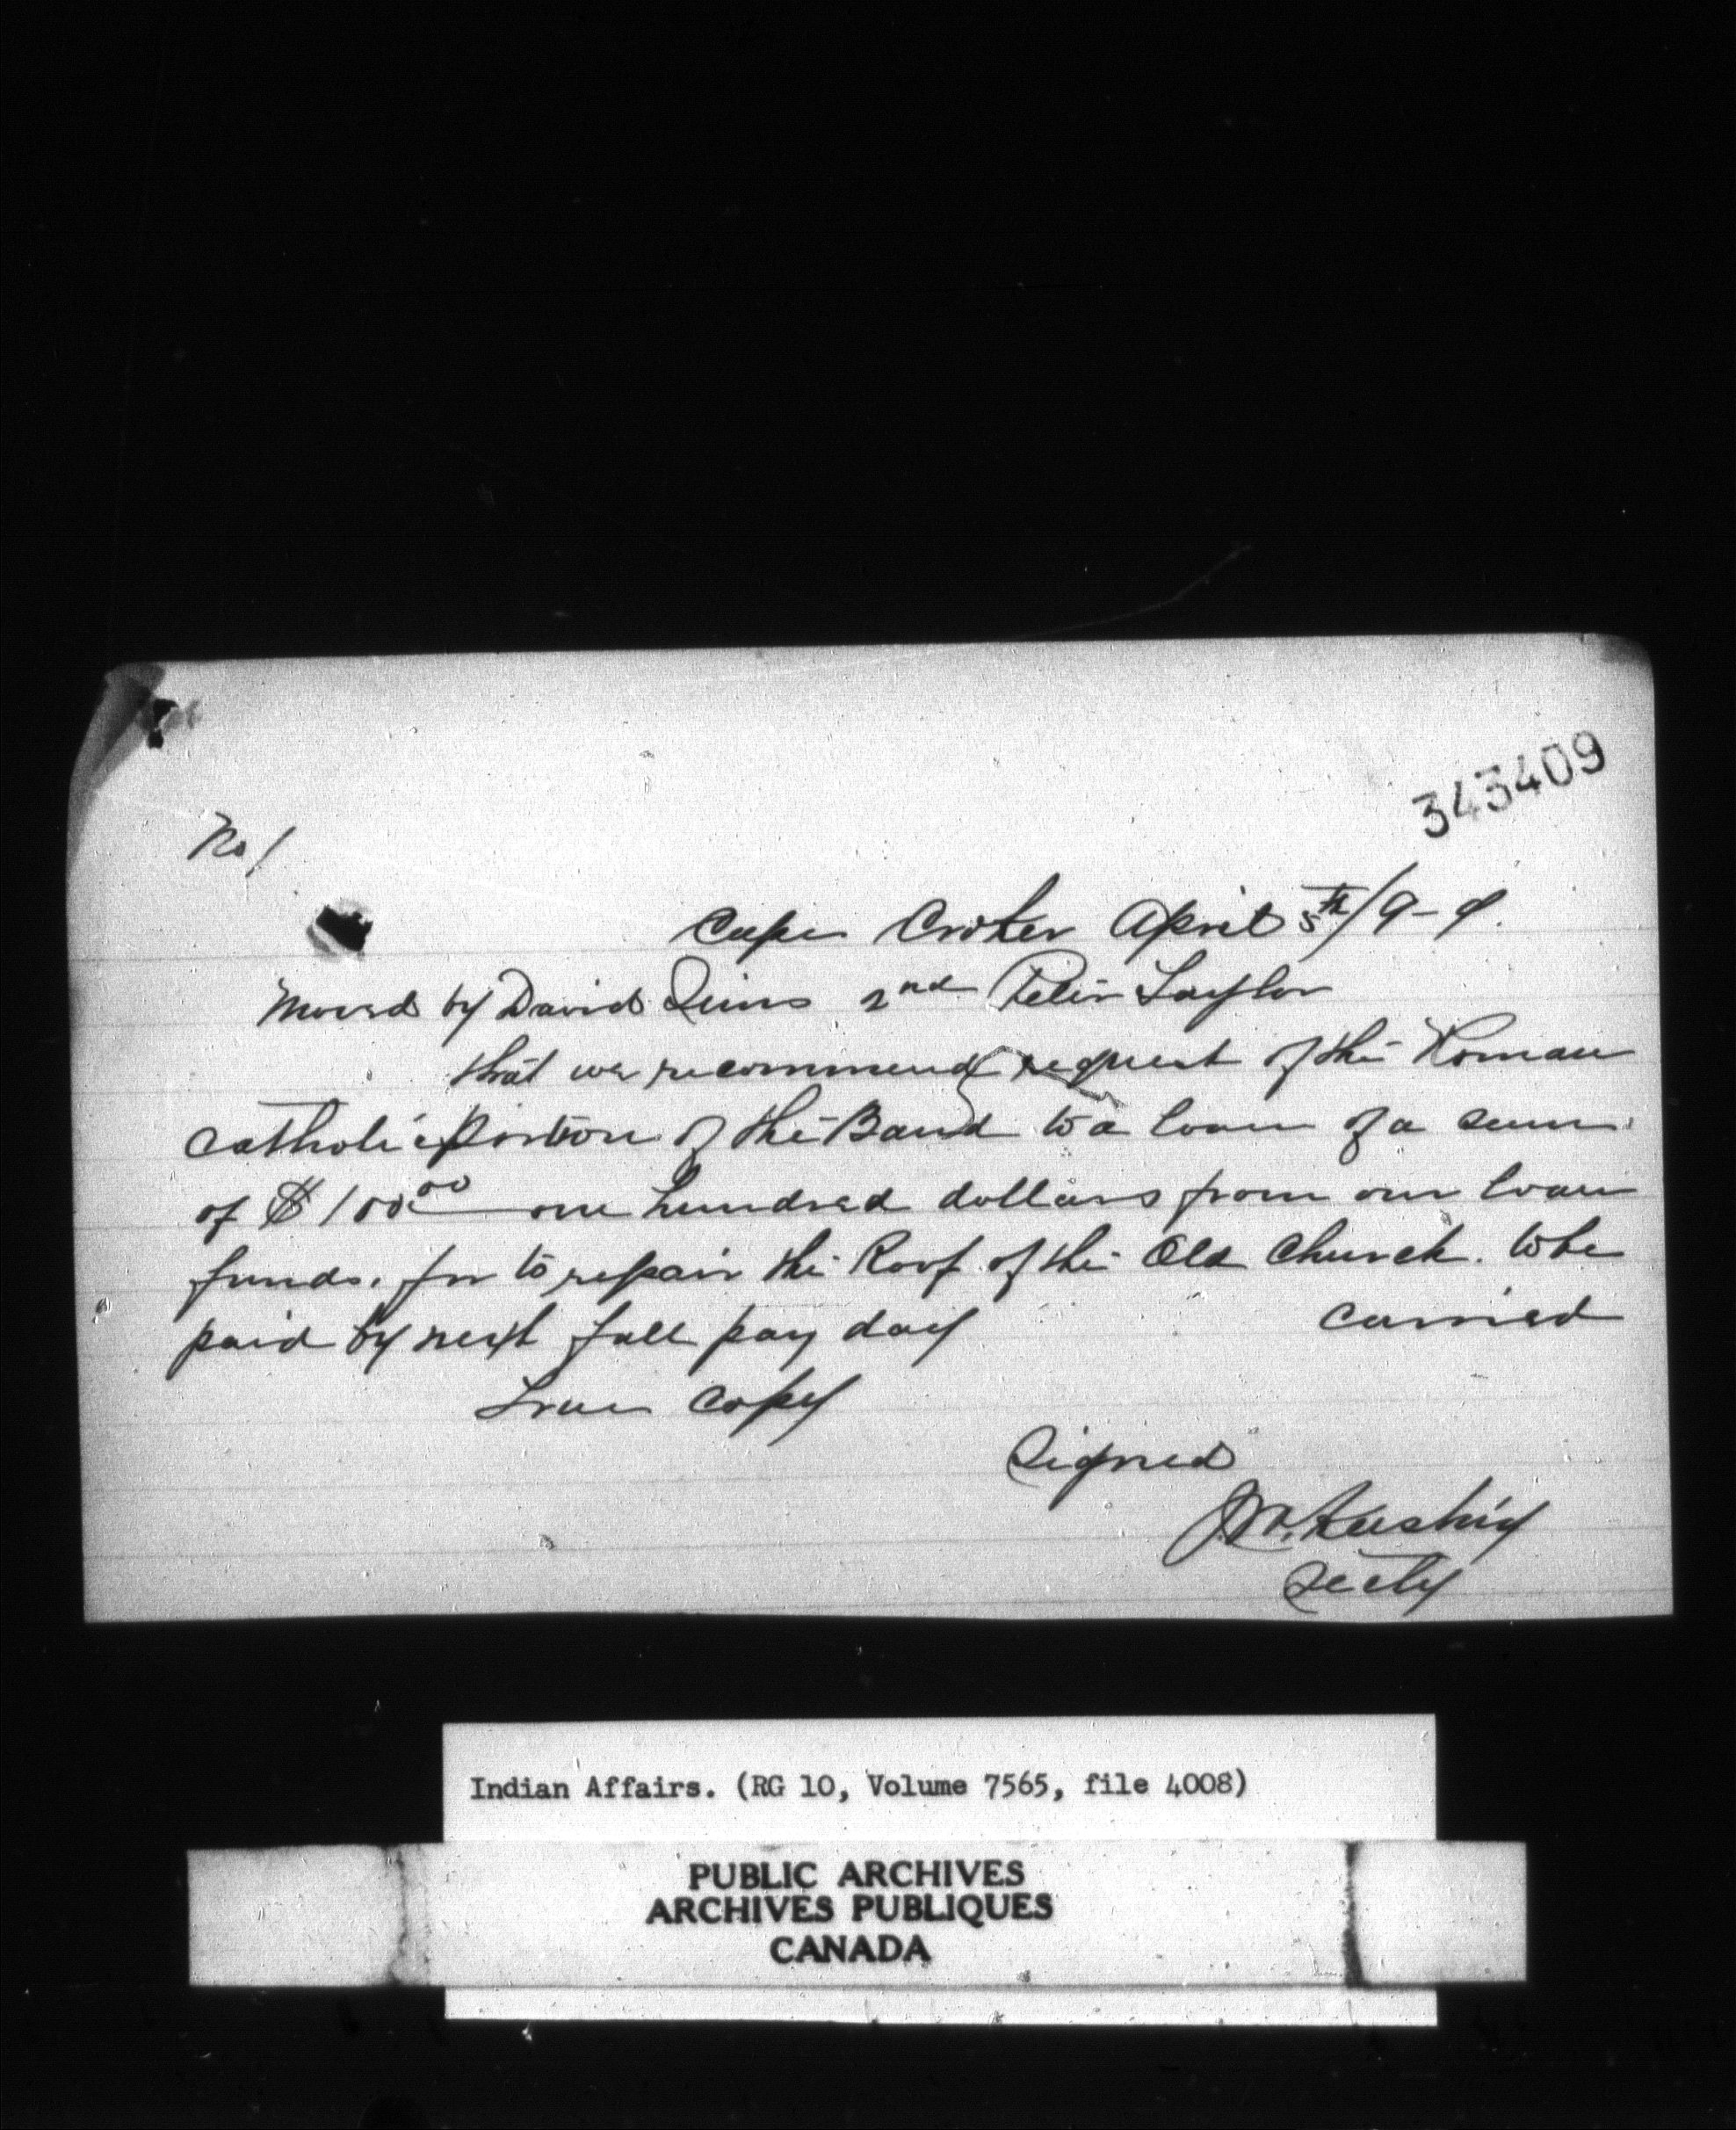 343409
No 1
Cape Croker April 5th/9-9.
Moved by David Sims 2nd Peter Taylor
that we recommend request of the Roman
Catholic Portion of the Band to a loan of a sum
of $100.00 one hundred dollars from our loan
funds. for to repair the Roof of the Old Church. to be
paid by next fall pay day carried
True Copy
Signed
Secty
Indian Affairs. (RG 10, Volume 7565, file 4008)
PUBLIC ARCHIVES
ARCHIVES PUBLIQUES
CANADA